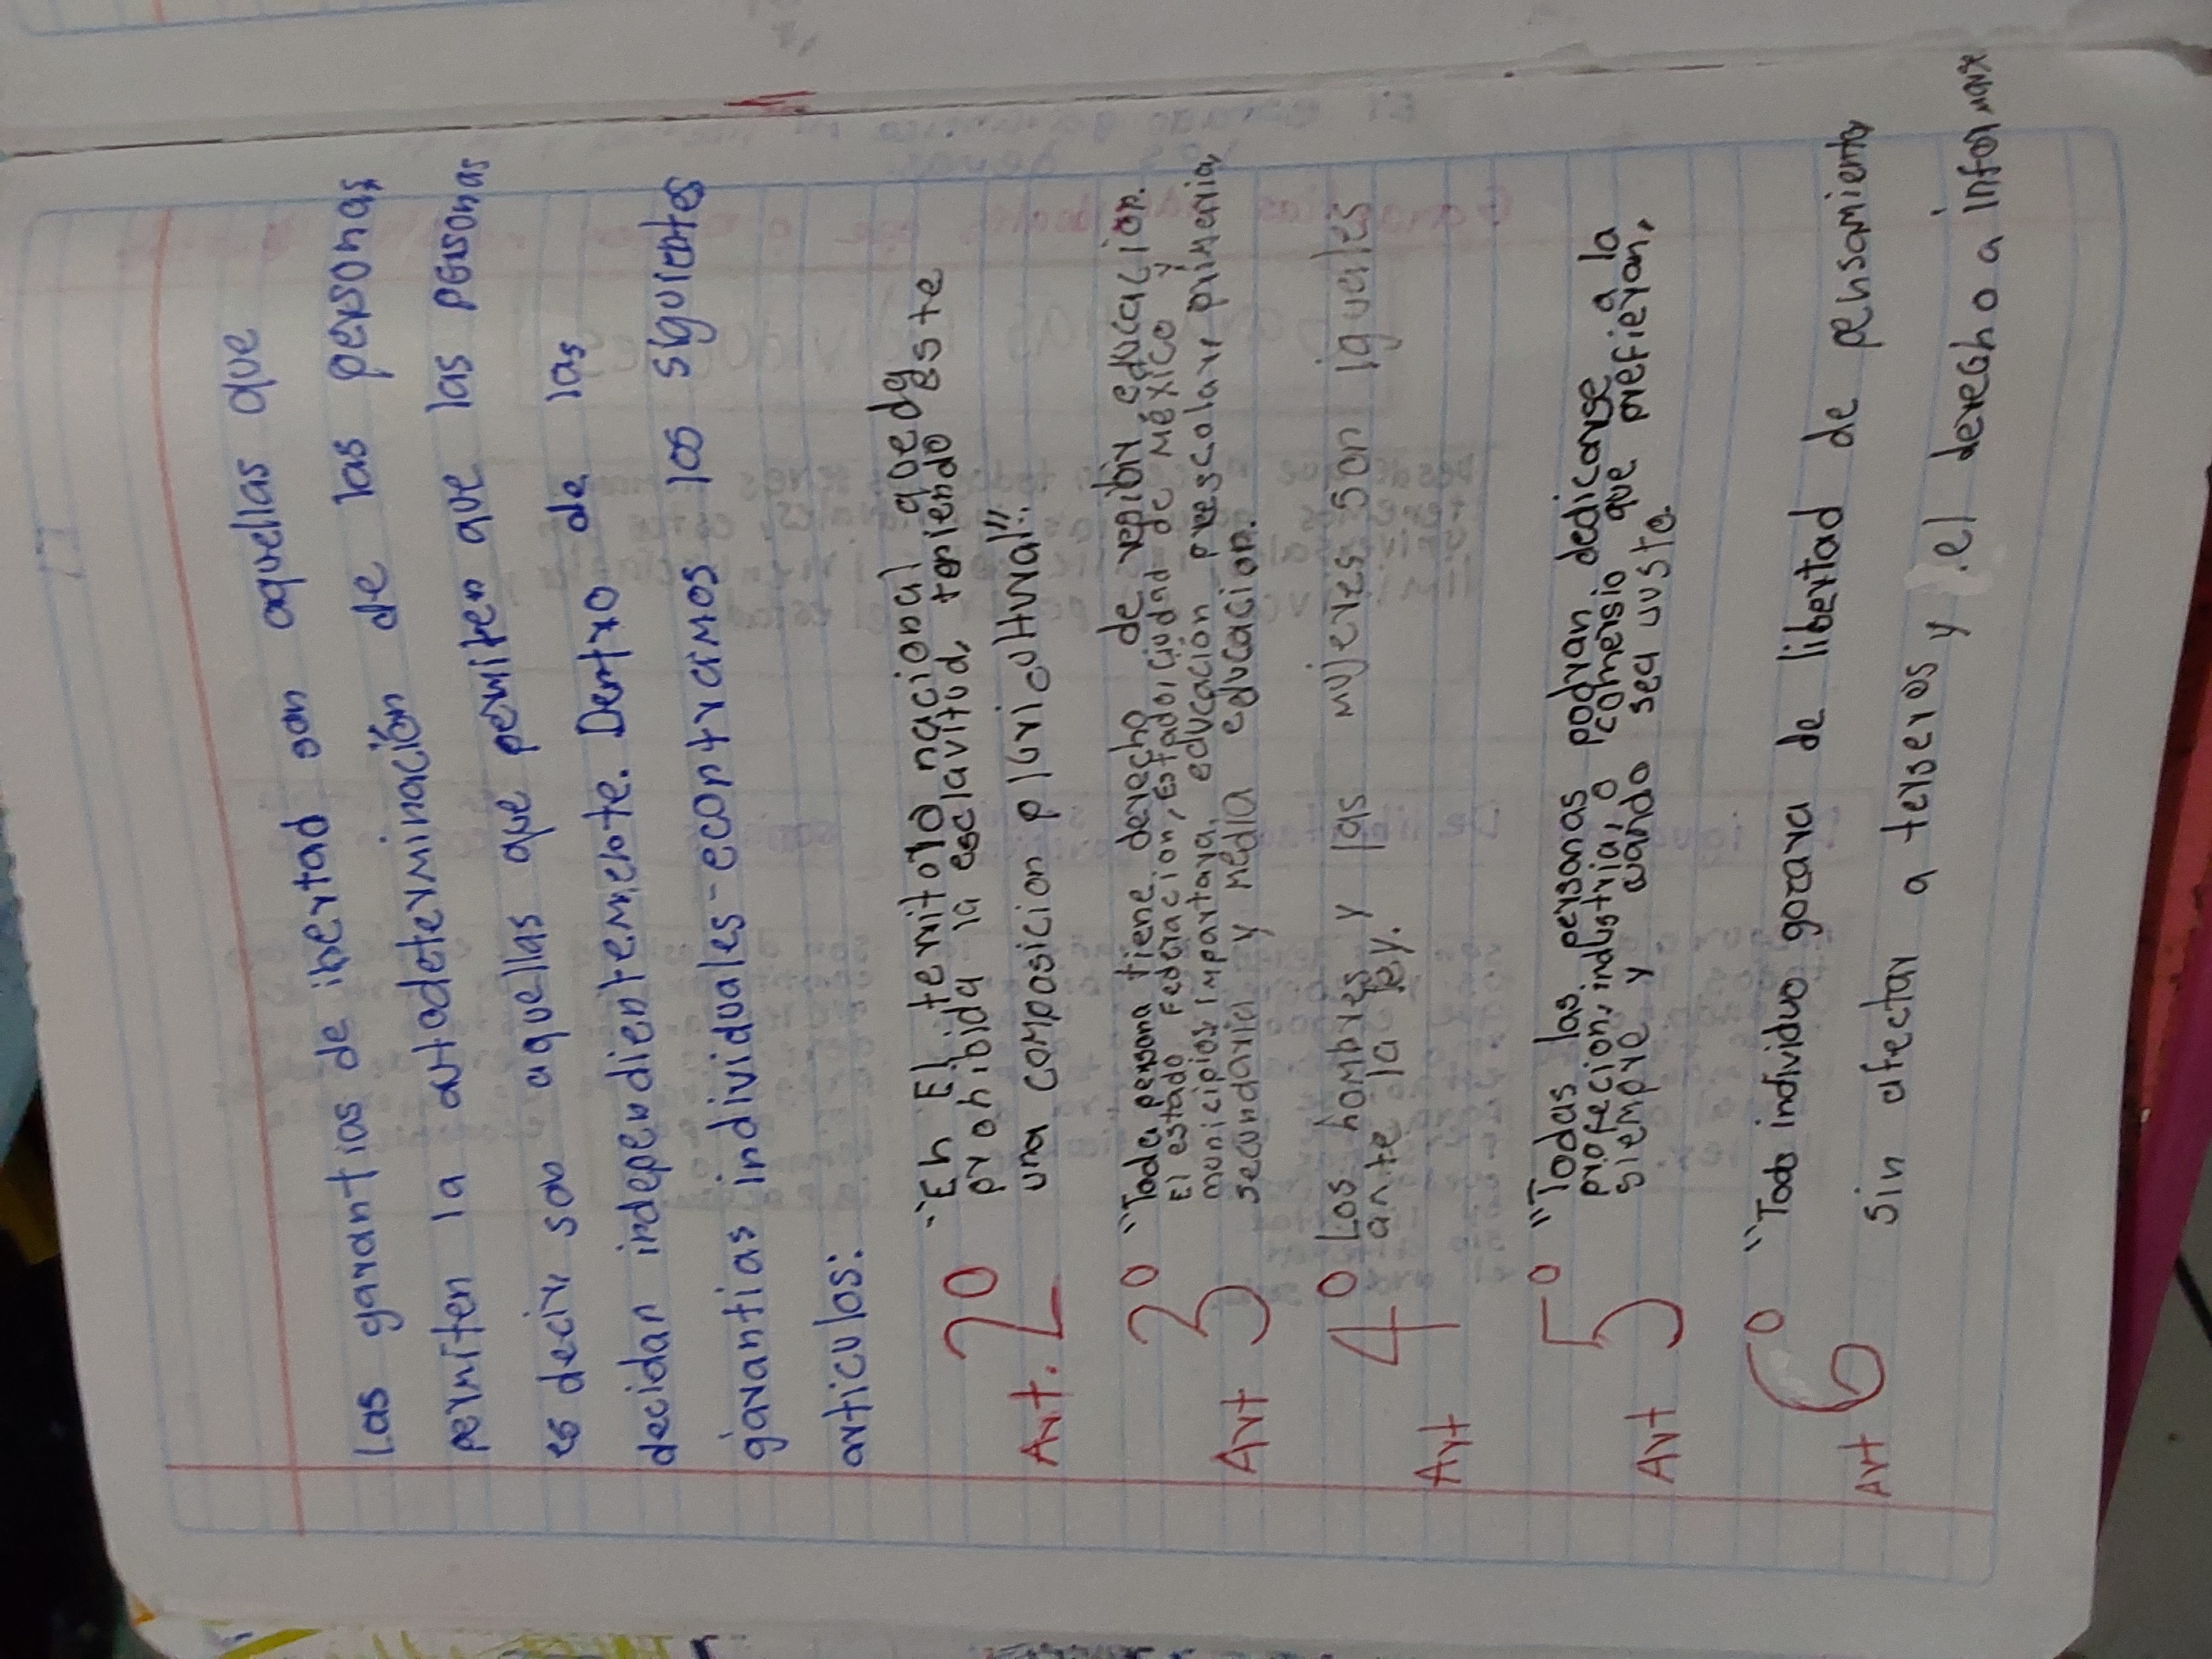 Las garantias de ibertad son aquellas que
permiten la autodeterminación de las personas
es decir son aquellas que permiten que las personas
decidan independientemente. Dentro de las
garantias individuales-econtramos los siguientes
articulos:
Art. 2° "En El territorio nacional queda
prohibida la esclavitud, teniendo este
una composicion pluricultural"
Art 3° "Toda persona tiene derecho de resibir educacion.
El estado Federacion, Estado, Ciudad de México y
municipios, impartara, educación prescolar, primeria,
secundaria y media educacion.
Art 4° Los hombres y las mujeres son iguales
ante la ley.
Art 5° "Todas las personas podran dedicarse a la
profecion, industria, o comersio que prefieran,
siempre y cuando sea justo.
Art 6° "Todo individuo gozara de libertad de pensamiento
sin afectar a terseros y el derecho a informar